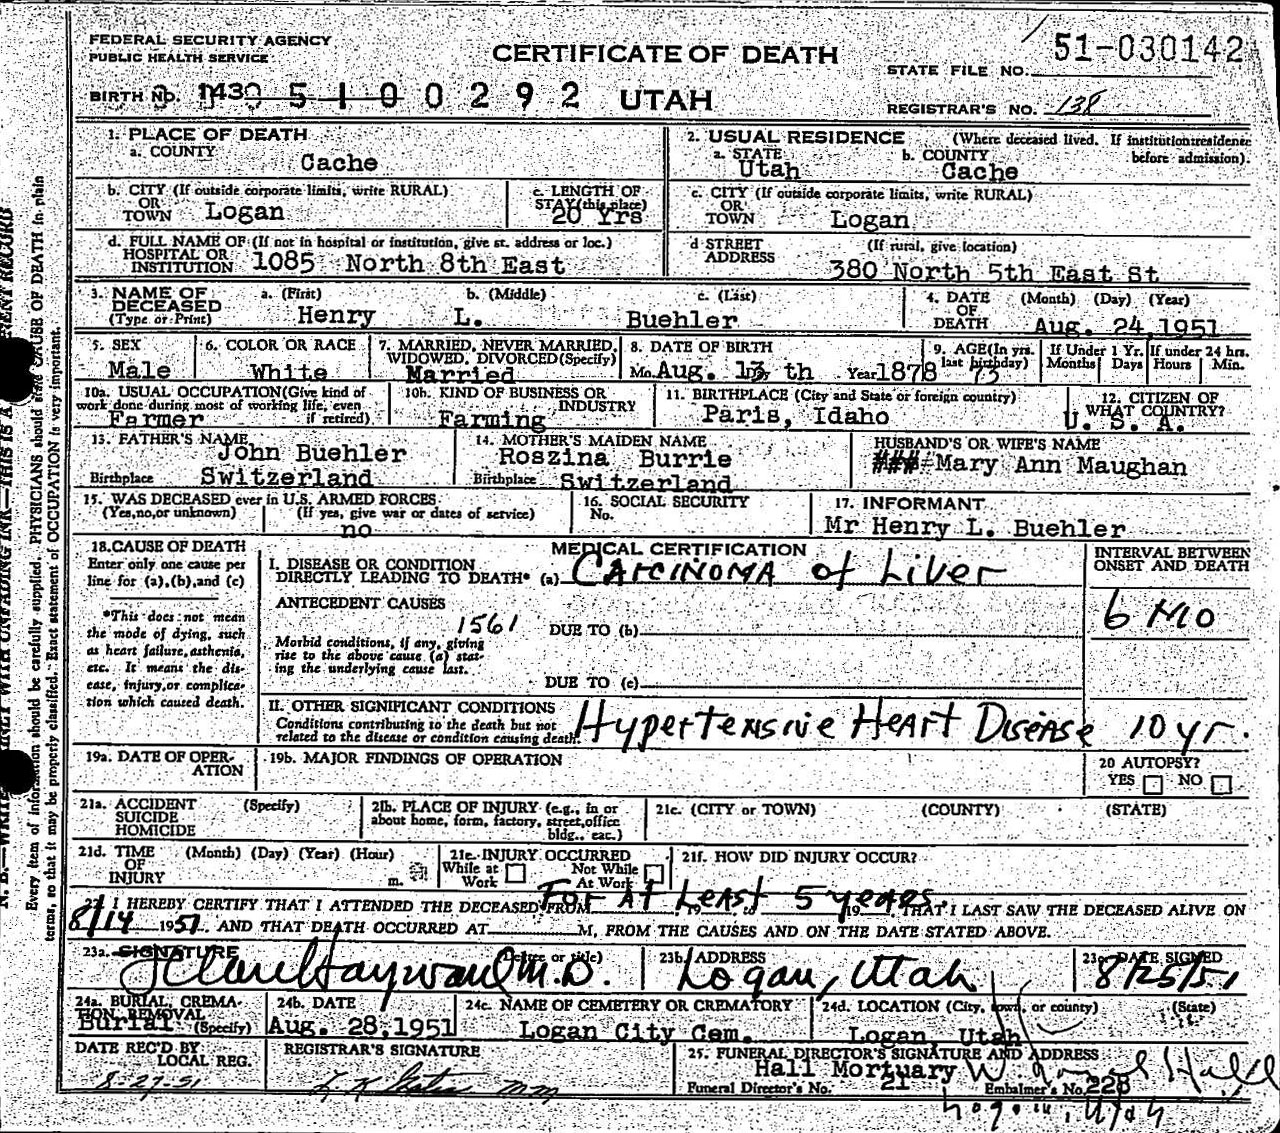 FEDERAL SECURITY AGENCY
PUBLIC HEALTH SERVICE
CERTIFICATE OF DEATH
51-030142
STATE FILE NO.
BIRTH NO. 143 0 5 1 0 0 2 9 2 UTAH
REGISTRAR'S NO. 138
1. PLACE OF DEATH
a. COUNTY
Cache
2. USUAL RESIDENCE (Where deceased lived. If institution:residence before admission).
a. STATE
Utah
b. COUNTY
Cache
b. CITY (If outside corporate limits, write RURAL)
OR
TOWN Logan
c. LENGTH OF
STAY (this place)
20 Yrs
c. CITY (If outside corporate limits, write RURAL)
OR
TOWN Logan
d. FULL NAME OF (If not in hospital or institution, give st. address or loc.)
HOSPITAL OR
INSTITUTION 1085 North 8th East
d STREET (If rural, give location)
ADDRESS
380 North 5th East St
3. NAME OF
DECEASED
(Type or Print)
a. (First)
Henry
b. (Middle)
L.
c. (Last)
Buehler
4. DATE (Month) (Day) (Year)
OF
DEATH Aug. 24,1951
5. SEX
Male
6. COLOR OR RACE
White
7. MARRIED, NEVER MARRIED,
WIDOWED, DIVORCED(Specify)
Married
8. DATE OF BIRTH
Mo. Aug. 13 Day th Year 1878
9. AGE(In yrs.
last birthday)
73
If Under 1 Yr.
Months Days
If under 24 hrs.
Hours Min.
10a. USUAL OCCUPATION(Give kind of
work done during most of working life, even
if retired)
Farmer
10b. KIND OF BUSINESS OR
INDUSTRY
Farming
11. BIRTHPLACE (City and State or foreign country)
Paris, Idaho
12. CITIZEN OF
WHAT COUNTRY?
U. S. A.
13. FATHER'S NAME
John Buehler
Birthplace Switzerland
14. MOTHER'S MAIDEN NAME
Roszina Burrie
Birthplace Switzerland
HUSBAND'S OR WIFE'S NAME
### Mary Ann Maughan
15. WAS DECEASED ever in U.S. ARMED FORCES
(Yes,no,or unknown) (If yes, give war or dates of service)
no
16. SOCIAL SECURITY
No.
17. INFORMANT
Mr Henry L. Buehler
18.CAUSE OF DEATH
Enter only one cause per
line for (a),(b),and (c)
*This does not mean
the mode of dying, such
as heart failure,asthenia,
etc. It means the dis-
ease, injury,or complica-
tion which caused death.
MEDICAL CERTIFICATION
I. DISEASE OR CONDITION
DIRECTLY LEADING TO DEATH* (a) CARCINOMA of Liver
INTERVAL BETWEEN
ONSET AND DEATH
6 MO
ANTECEDENT CAUSES
1561
DUE TO (b)
Morbid conditions, if any, giving
rise to the above cause (a) stat-
ing the underlying cause last.
DUE TO (c)
II. OTHER SIGNIFICANT CONDITIONS
Conditions contributing to the death but not
related to the disease or condition causing death.
Hypertensive Heart Disease 10 yr.
19a. DATE OF OPER-
ATION
19b. MAJOR FINDINGS OF OPERATION
20 AUTOPSY?
YES NO
21a. ACCIDENT (Specify)
SUICIDE
HOMICIDE
21b. PLACE OF INJURY (e.g., in or
about home, form, factory, street,office
bldg., eac.)
21c. (CITY or TOWN) (COUNTY) (STATE)
21d. TIME (Month) (Day) (Year) (Hour)
OF
INJURY m.
21e. INJURY OCCURRED
While at Work
Not While At Work
21f. HOW DID INJURY OCCUR?
22. I HEREBY CERTIFY THAT I ATTENDED THE DECEASED FROM For At Least 5 years. 19 to 19 THAT I LAST SAW THE DECEASED ALIVE ON
8/14 1951, AND THAT DEATH OCCURRED AT M, FROM THE CAUSES AND ON THE DATE STATED ABOVE.
23a. SIGNATURE (Degree or title)
J Clare Hayward M.D.
23b. ADDRESS
Logan, Utah
23c. DATE SIGNED
8/25/51
24a. BURIAL, CREMA-
TION, REMOVAL
(Specify)
Burial
24b. DATE
Aug. 28,1951
24c. NAME OF CEMETERY OR CREMATORY
Logan City Cem.
24d. LOCATION (City, town, or county) (State)
Logan, Utah
DATE REC'D BY
LOCAL REG.
8-27-51
REGISTRAR'S SIGNATURE
25. FUNERAL DIRECTOR'S SIGNATURE AND ADDRESS
Hall Mortuary W. Hall
Funeral Director's No. 21 Embalmer's No. 228
Logan, Utah
Every item of information should be carefully supplied. PHYSICIANS should state CAUSE OF DEATH in plain
terms, so that it may be properly classified. Exact statement of OCCUPATION is very important.